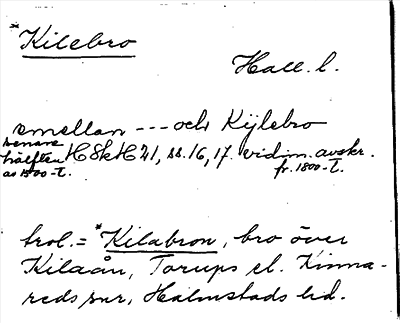 *Kilebro
Hall. l.
emellan --- och Kijlebro
senare
hälften
av 1500-t.
HSkH 21, ss. 16, 17. vidim. avskr.
fr. 1800-t.
trol. = *Kilabron, bro över
Kilaån, Torups el. Kinna-
reds snr, Halmstads hd.